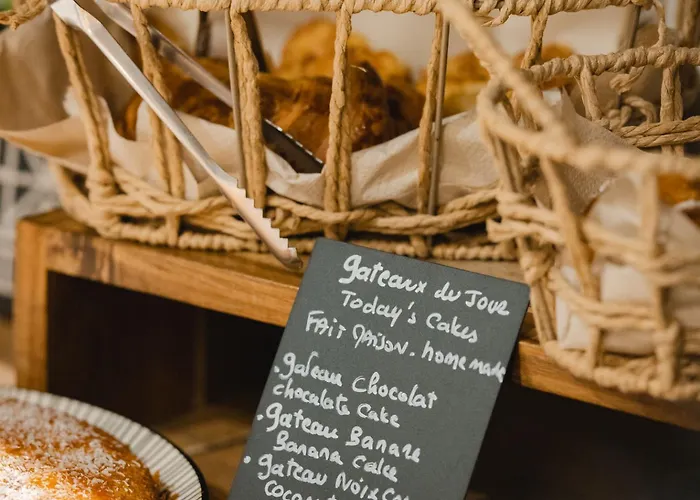 Gateaux du Jour
Today's Cakes
Fait Maison. homemade
. Gateau Chocolat
chocolate cake
. Gateau Banane
Banana cake
. Gateau Noix